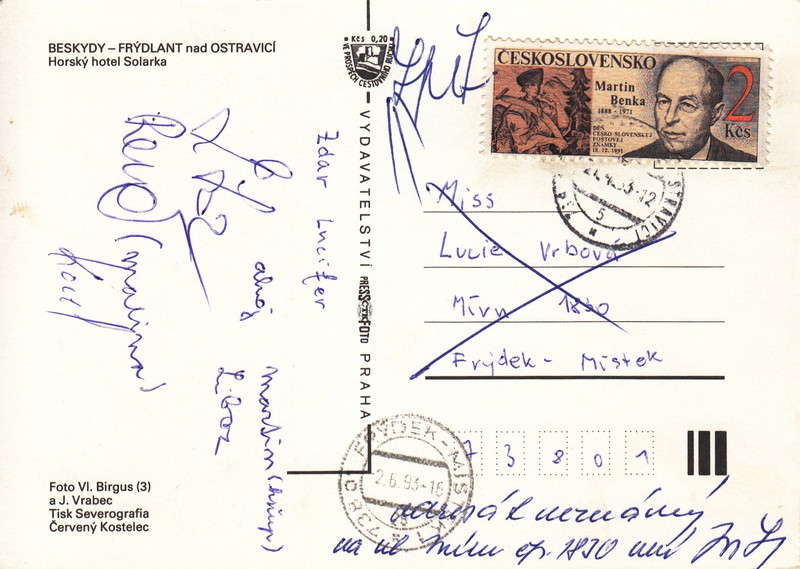 BESKYDY – FRÝDLANT nad OSTRAVICÍ
Horský hotel Solarka
Kčs 0,20
VE PROSPĚCH CESTOVNÍHO RUCHU
VYDAVATELSTVÍ PRESSFOTO PRAHA
ČESKOSLOVENSKO
Martin
Benka
1888 - 1971
DEŇ
ČESKO-SLOVENSKEJ
POŠTOVEJ
ZNÁMKY
18. 12. 1991
2
Kčs
Zdar Lucifer
ahoj
Martin
Libor
(malina)
Miss
Lucie Vrbová
Mírů 1830
Frýdek - Místek
7 3 8 0 1
FRÝDEK-MÍSTEK
2.6.93-16
adresát neznámý
na ul Míru čp. 1830 není
Foto Vl. Birgus (3)
a J. Vrabec
Tisk Severografia
Červený Kostelec